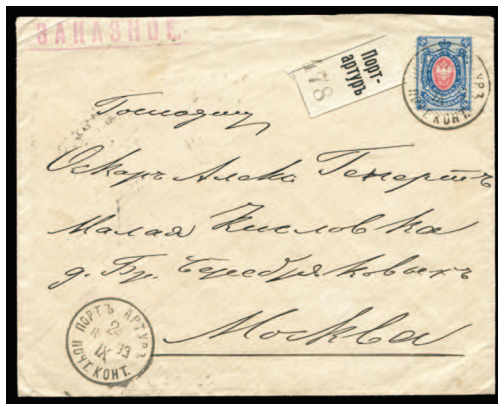 ЗАКАЗНОЕ.
Порт-
артуръ
478
УРЪ
ПОЧТ. КОНТ.
Господину
Оскаръ Алекс Генертъ
Малая Кисловка
д. Бр. Серебряковыхъ
Москва
ПОРТЪ АРТУРЪ
IX
ПОЧТ. КОНТ.